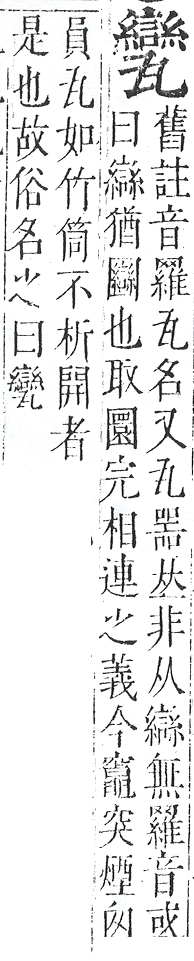 ⿱䜌瓦
舊註音羅瓦名又瓦噐𠀤非从䜌無羅音或
曰䜌猶圝也取圜完相連之義今竈突煙囱
員瓦如竹筒不析開者
是也故俗名之曰⿱䜌瓦